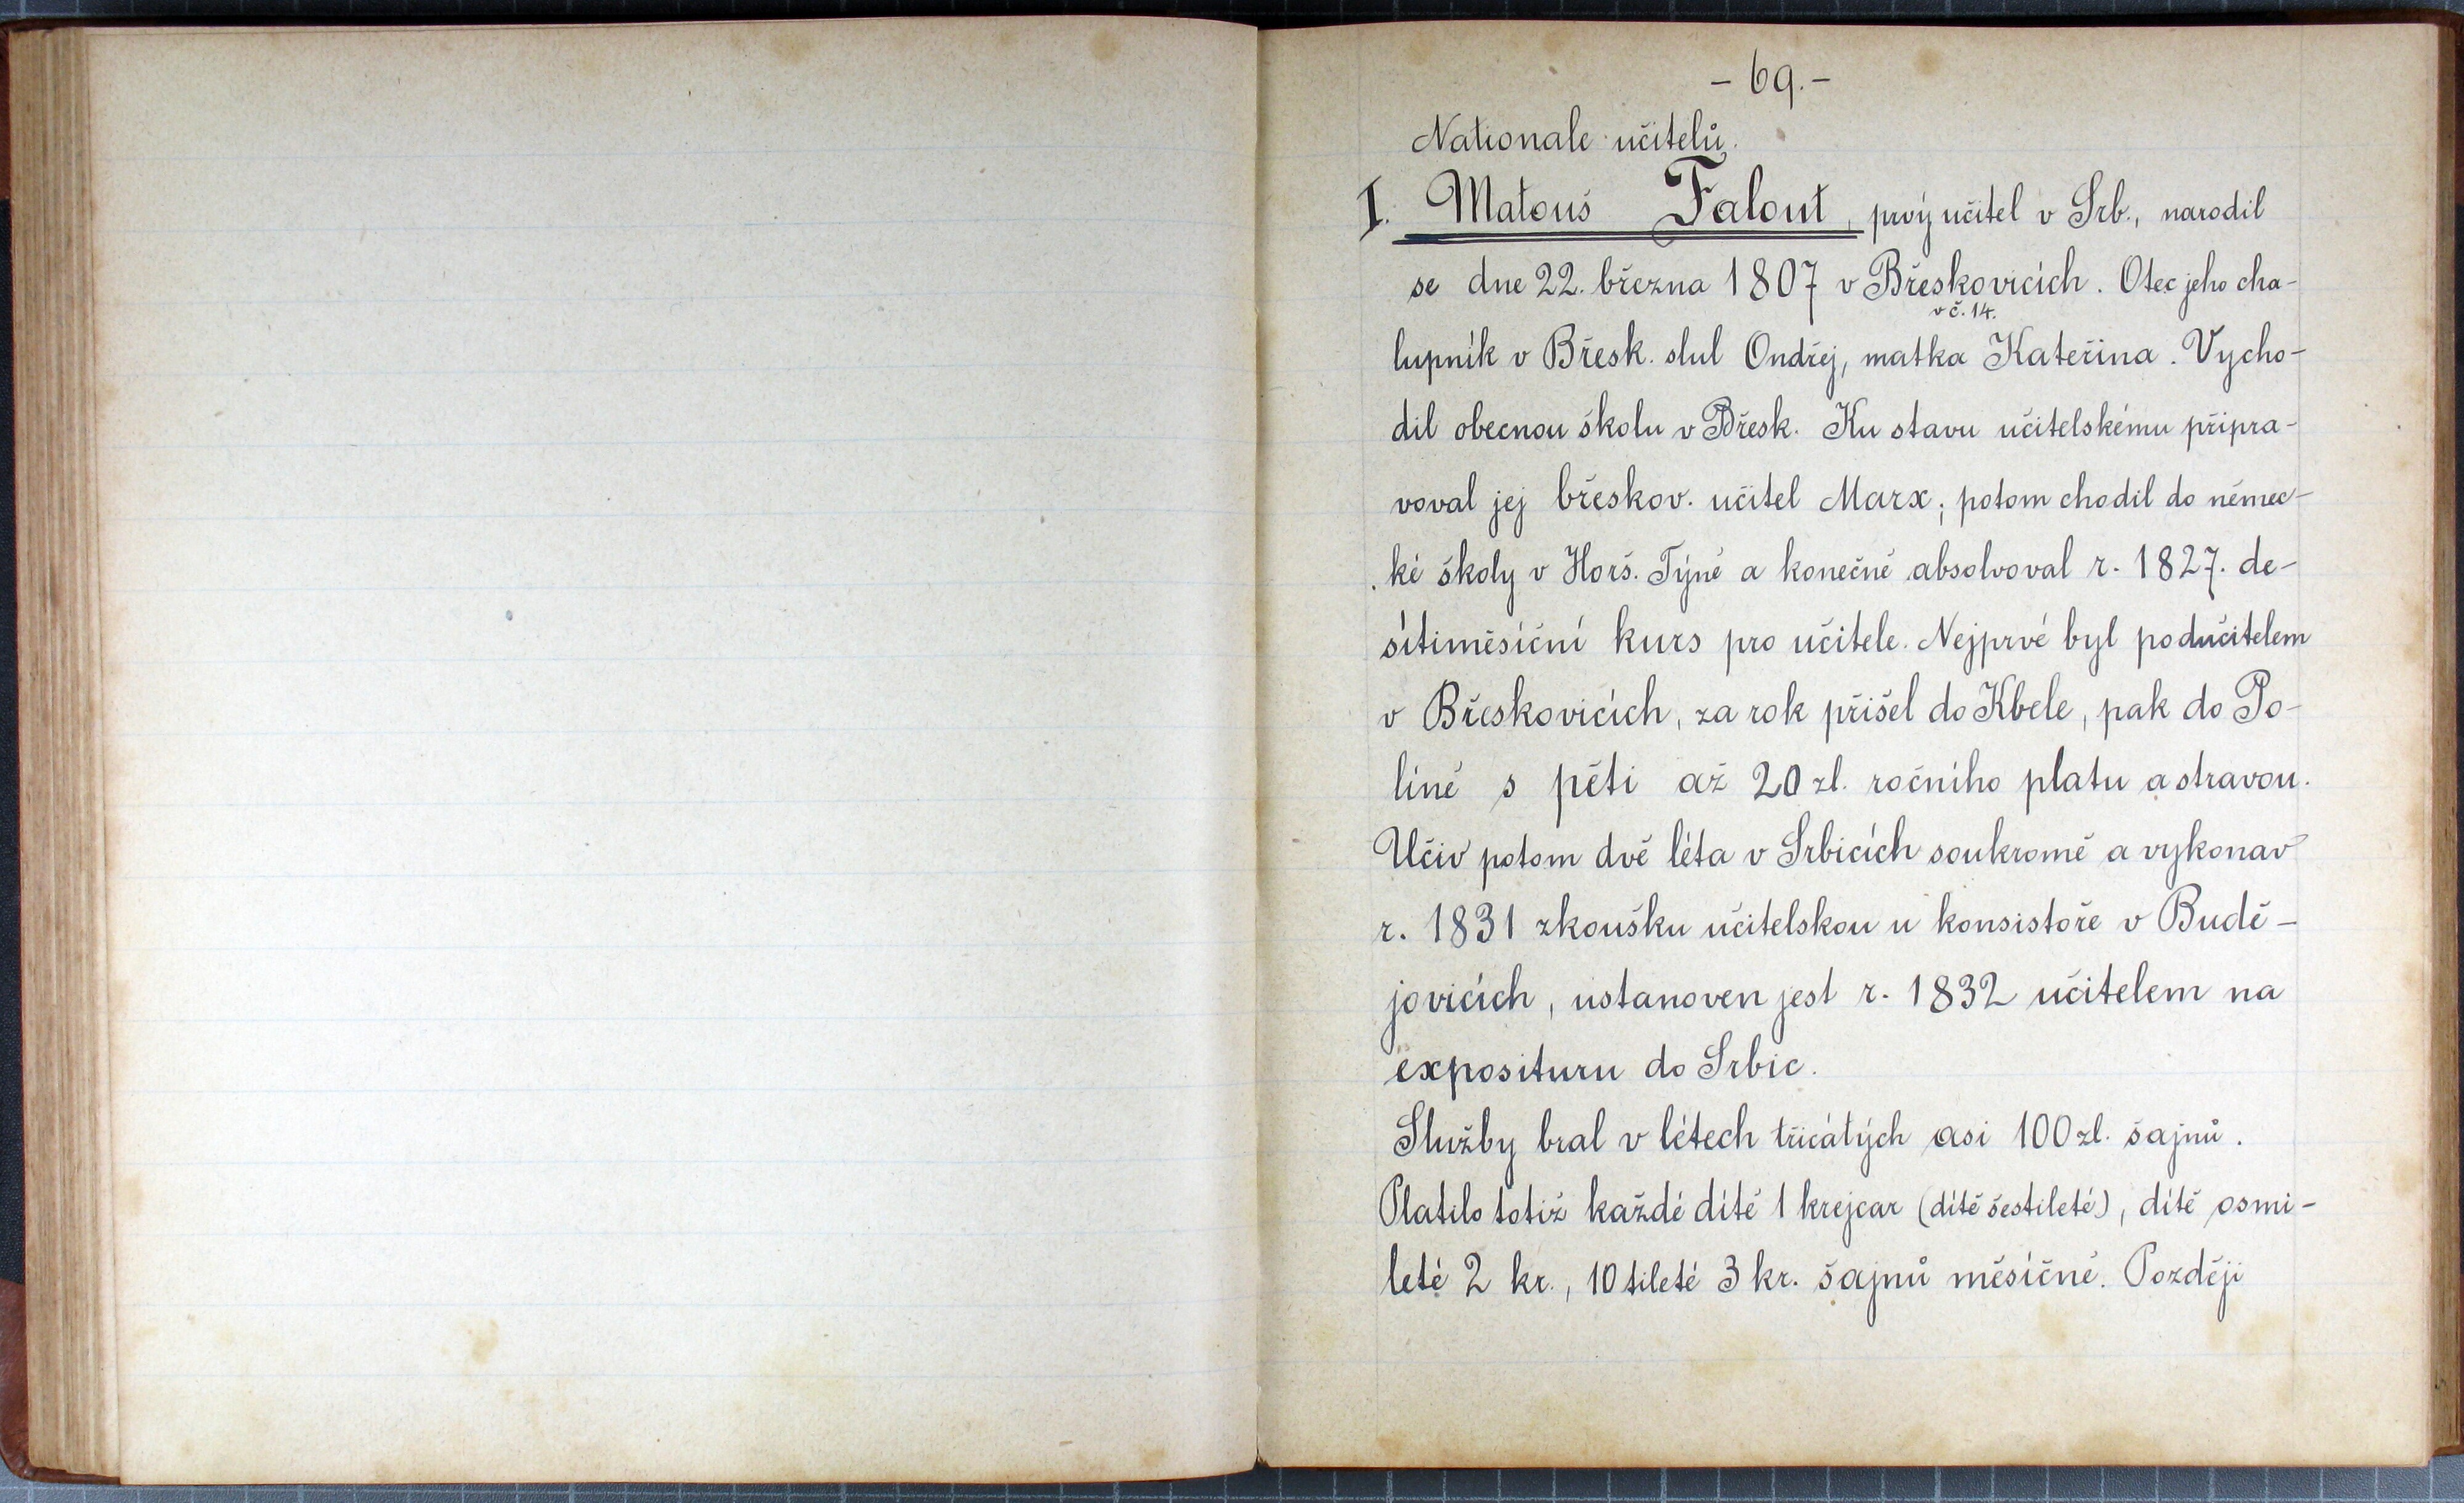 - 69. -
Nationale učitelů.
I. Matouš Falout, prvý učitel v Srb., narodil
se dne 22. března 1807 v Břeskovicích. Otec jeho cha-
v č. 14.
lupník v Břesk. slul Ondřej, matka Kateřina. Vycho-
dil obecnou školu v Břesk. Ku stavu učitelskému připra-
voval jej břeskov. učitel Marx; potom chodil do němec-
ké školy v Horš. Týně a konečně absolvoval r. 1827. de-
sítiměsíční kurs pro učitele. Nejprvé byl podučitelem
v Břeskovicích, za rok přišel do Kbele, pak do Po-
líně s pěti až 20 zl. ročního platu a stravou.
Učiv potom dvě léta v Srbicích soukromě a vykonav
r. 1831 zkoušku učitelskou u konsistoře v Budě-
jovicích, ustanoven jest r. 1832 učitelem na
exposituru do Srbic.
Služby bral v létech třicátých asi 100 zl. šajnů.
Platilo totiž každé dítě 1 krejcar (dítě šestileté), dítě osmi-
leté 2 kr., 10tileté 3 kr. šajnů měsíčně. Později